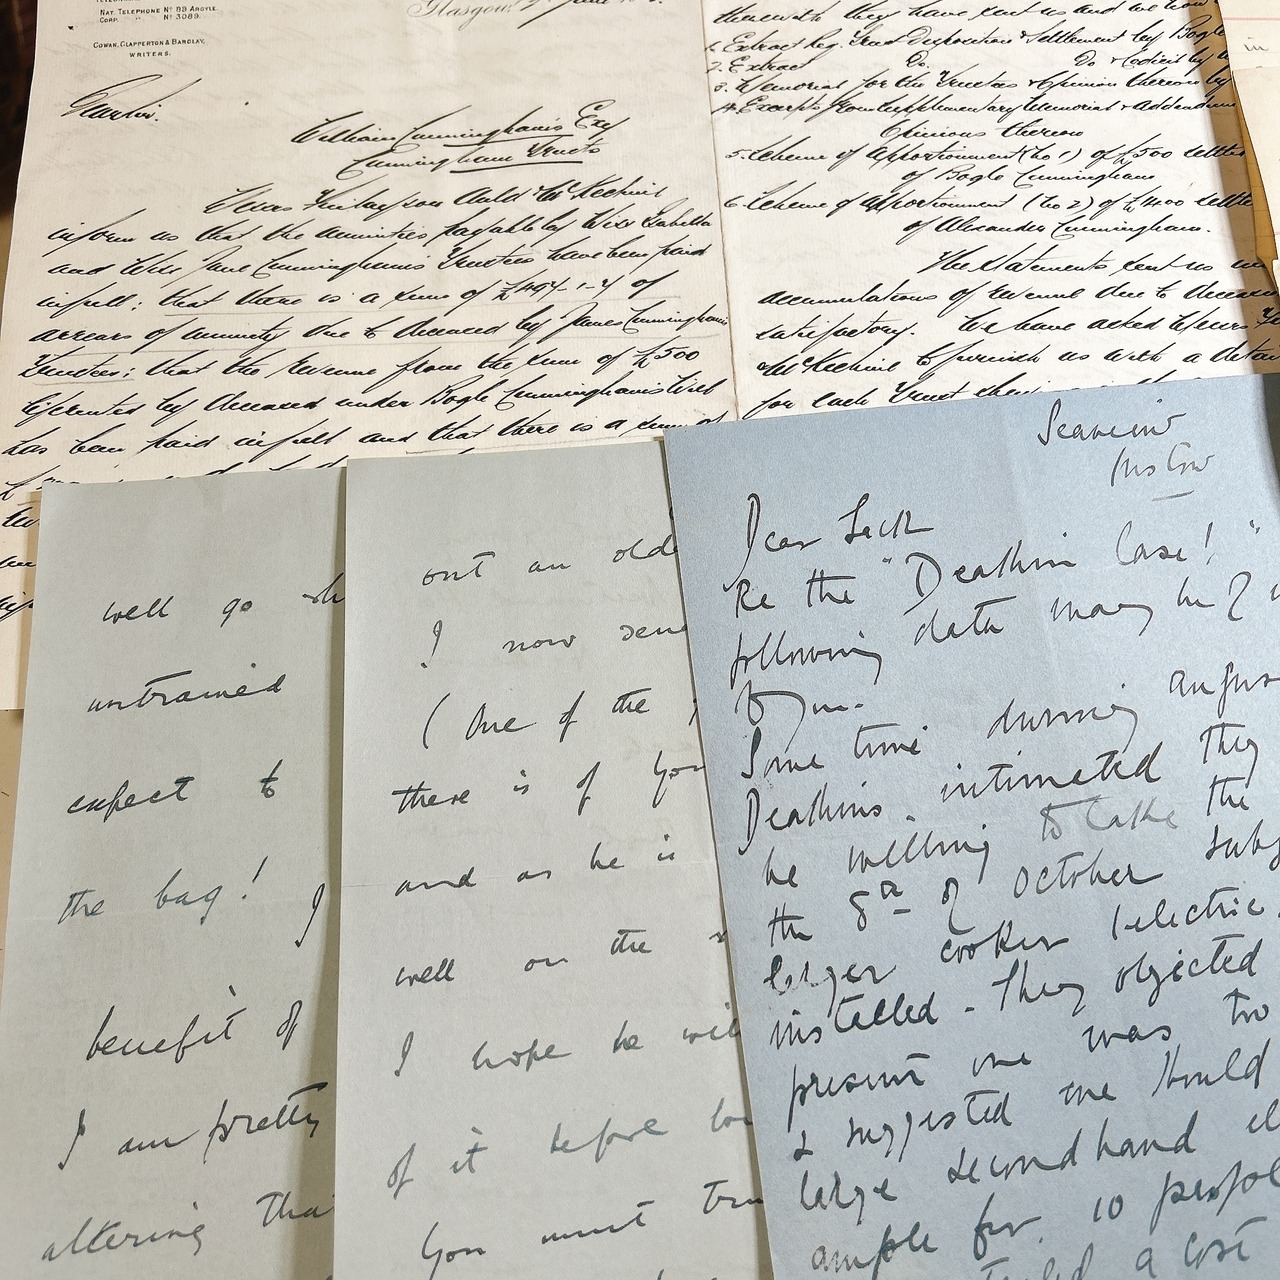 NAT. TELEPHONE Nº 89 ARGYLE.
CORP. " Nº 3089.
COWAN, CLAPPERTON & BARCLAY,
WRITERS.
Glasgow,
William Cunningham's Exy
Cunningham Trusts
Messrs Finlayson Auld & McKechnie
inform us that the annuities payable by Miss Isabella
and Miss Jane Cunningham's Trustees have been paid
in full: that there is a sum of £494-1-4 of
arrears of annuity due to deceased by James Cunningham's
Trustees: that the Revenue from the sum of £500
liferented by deceased under Bogle Cunningham's Will
has been paid in full and that there is a sum of
therewith they have sent us and we now
1. Extract Reg. Trust Disposition & Settlement by Bogle
2. Extract Do. Do & Codicil by
3. Memorial for the Trustees & Opinion thereon by
4. Excerpts from Supplementary Memorial & Addendum
Opinions thereon
5. Scheme of Apportionment (No 1) of £500 settled
of Bogle Cunningham
6. Scheme of Apportionment (No 2) of £1400 settle
of Alexander Cunningham.
The Statements sent us
accumulations of revenue due to deceased
satisfactory. We have asked Messrs
McKechnie to furnish us with a detai
for each Trust
well go
untrained
expect to
the bag!
I
benefit of
I am pretty
altering tha
out an olde
I now send
(One of the
there is of you
and as he is
well on the
I hope he wil
of it before
You must
Instow
Dear Jack
Re the "Deakin Case!"
following data may be of
to you.
Some time during Augus
Deakins intimated they
be willing to take the
the 8th of October
larger cooker (electric
installed - They objected
present one was too
& suggested we should
large secondhand
ample for 10 people
a cost